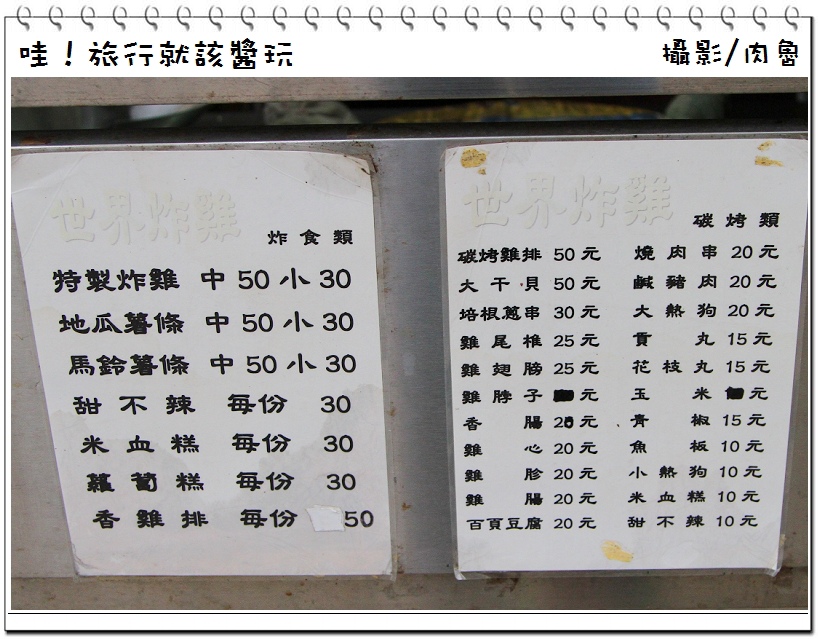 哇！旅行就該醬玩
攝影/肉魯
世界炸雞
炸食類
特製炸雞 中 50 小 30
地瓜薯條 中 50 小 30
馬鈴薯條 中 50 小 30
甜不辣 每份 30
米血糕 每份 30
蘿蔔糕 每份 30
香雞排 每份 50
世界炸雞
碳烤類
碳烤雞排 50元
大干貝 50元
培根蔥串 30元
雞尾椎 25元
雞翅膀 25元
雞脖子 元
香腸 20元
雞心 20元
雞胗 20元
雞腸 20元
百頁豆腐 20元
燒肉串 20元
鹹豬肉 20元
大熱狗 20元
貢丸 15元
花枝丸 15元
玉米 元
青椒 15元
魚板 10元
小熱狗 10元
米血糕 10元
甜不辣 10元